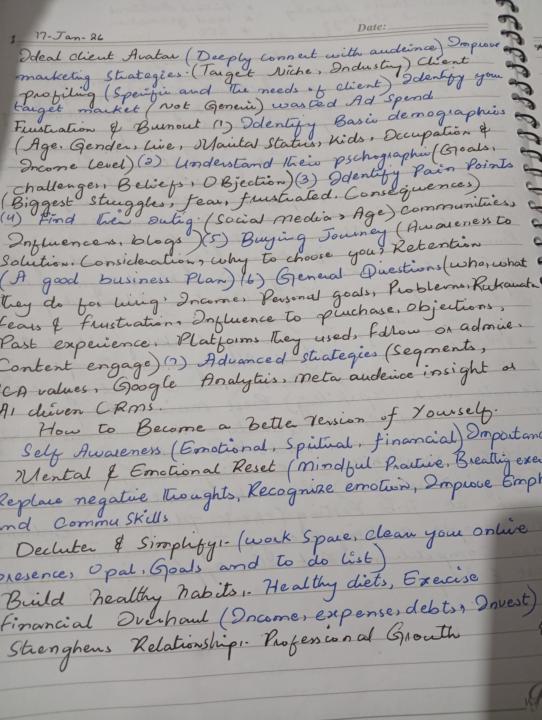 Date:
1 17-Jan-26
Ideal client Avatar (Deeply connect with audeince) Improve
marketing strategies: (Target Niche, Industry) Client
profiling (Specific and the needs of client) Identify your
target market (Not Generic) wasted Ad Spend
Frustration & Burnout (1) Identify Basic demographics
(Age, Gender, Live, Marital Status, Kids, Occupation &
Income level) (2) Understand their pschographic (Goals,
challenges, Beliefs, Objection) (3) Identify Pain Points
(Biggest struggles, fear, frustrated, Consequences)
(4) Find their (Social media, Age) Communities,
Influencers, blogs) (5) Buying Journey (Awareness to
Solution, Consideration, why to choose you, Retention
(A good business Plan) (6) General Questions (who, what
they do for living, Income, Personal goals, Problems,
fears & frustration, Influence to puchase, objections,
Past experience, Platforms they used, follow or admire,
Content engage) (7) Advanced strategies (Segments,
CA values, Google Analytics, meta audeince insight or
AI driven CRMs.
How to Become a Bette Version of Yourself.
Self Awareness (Emotional, Spitual, financial) Importanc
Mental & Emotional Reset (Mindful Practive, Breathig exe
Replace negative thoughts, Recognize emotion, Improve Emph
nd Commu Skills
Decluter & Simplify:- (work Space, clean your online
presence, Opal, Goals and to do list)
Build healthy habits:- Healthy diets, Exercise
Financial Overhaul (Income, expense, debts, Invest)
Strenghens Relationship:- Professional Growth